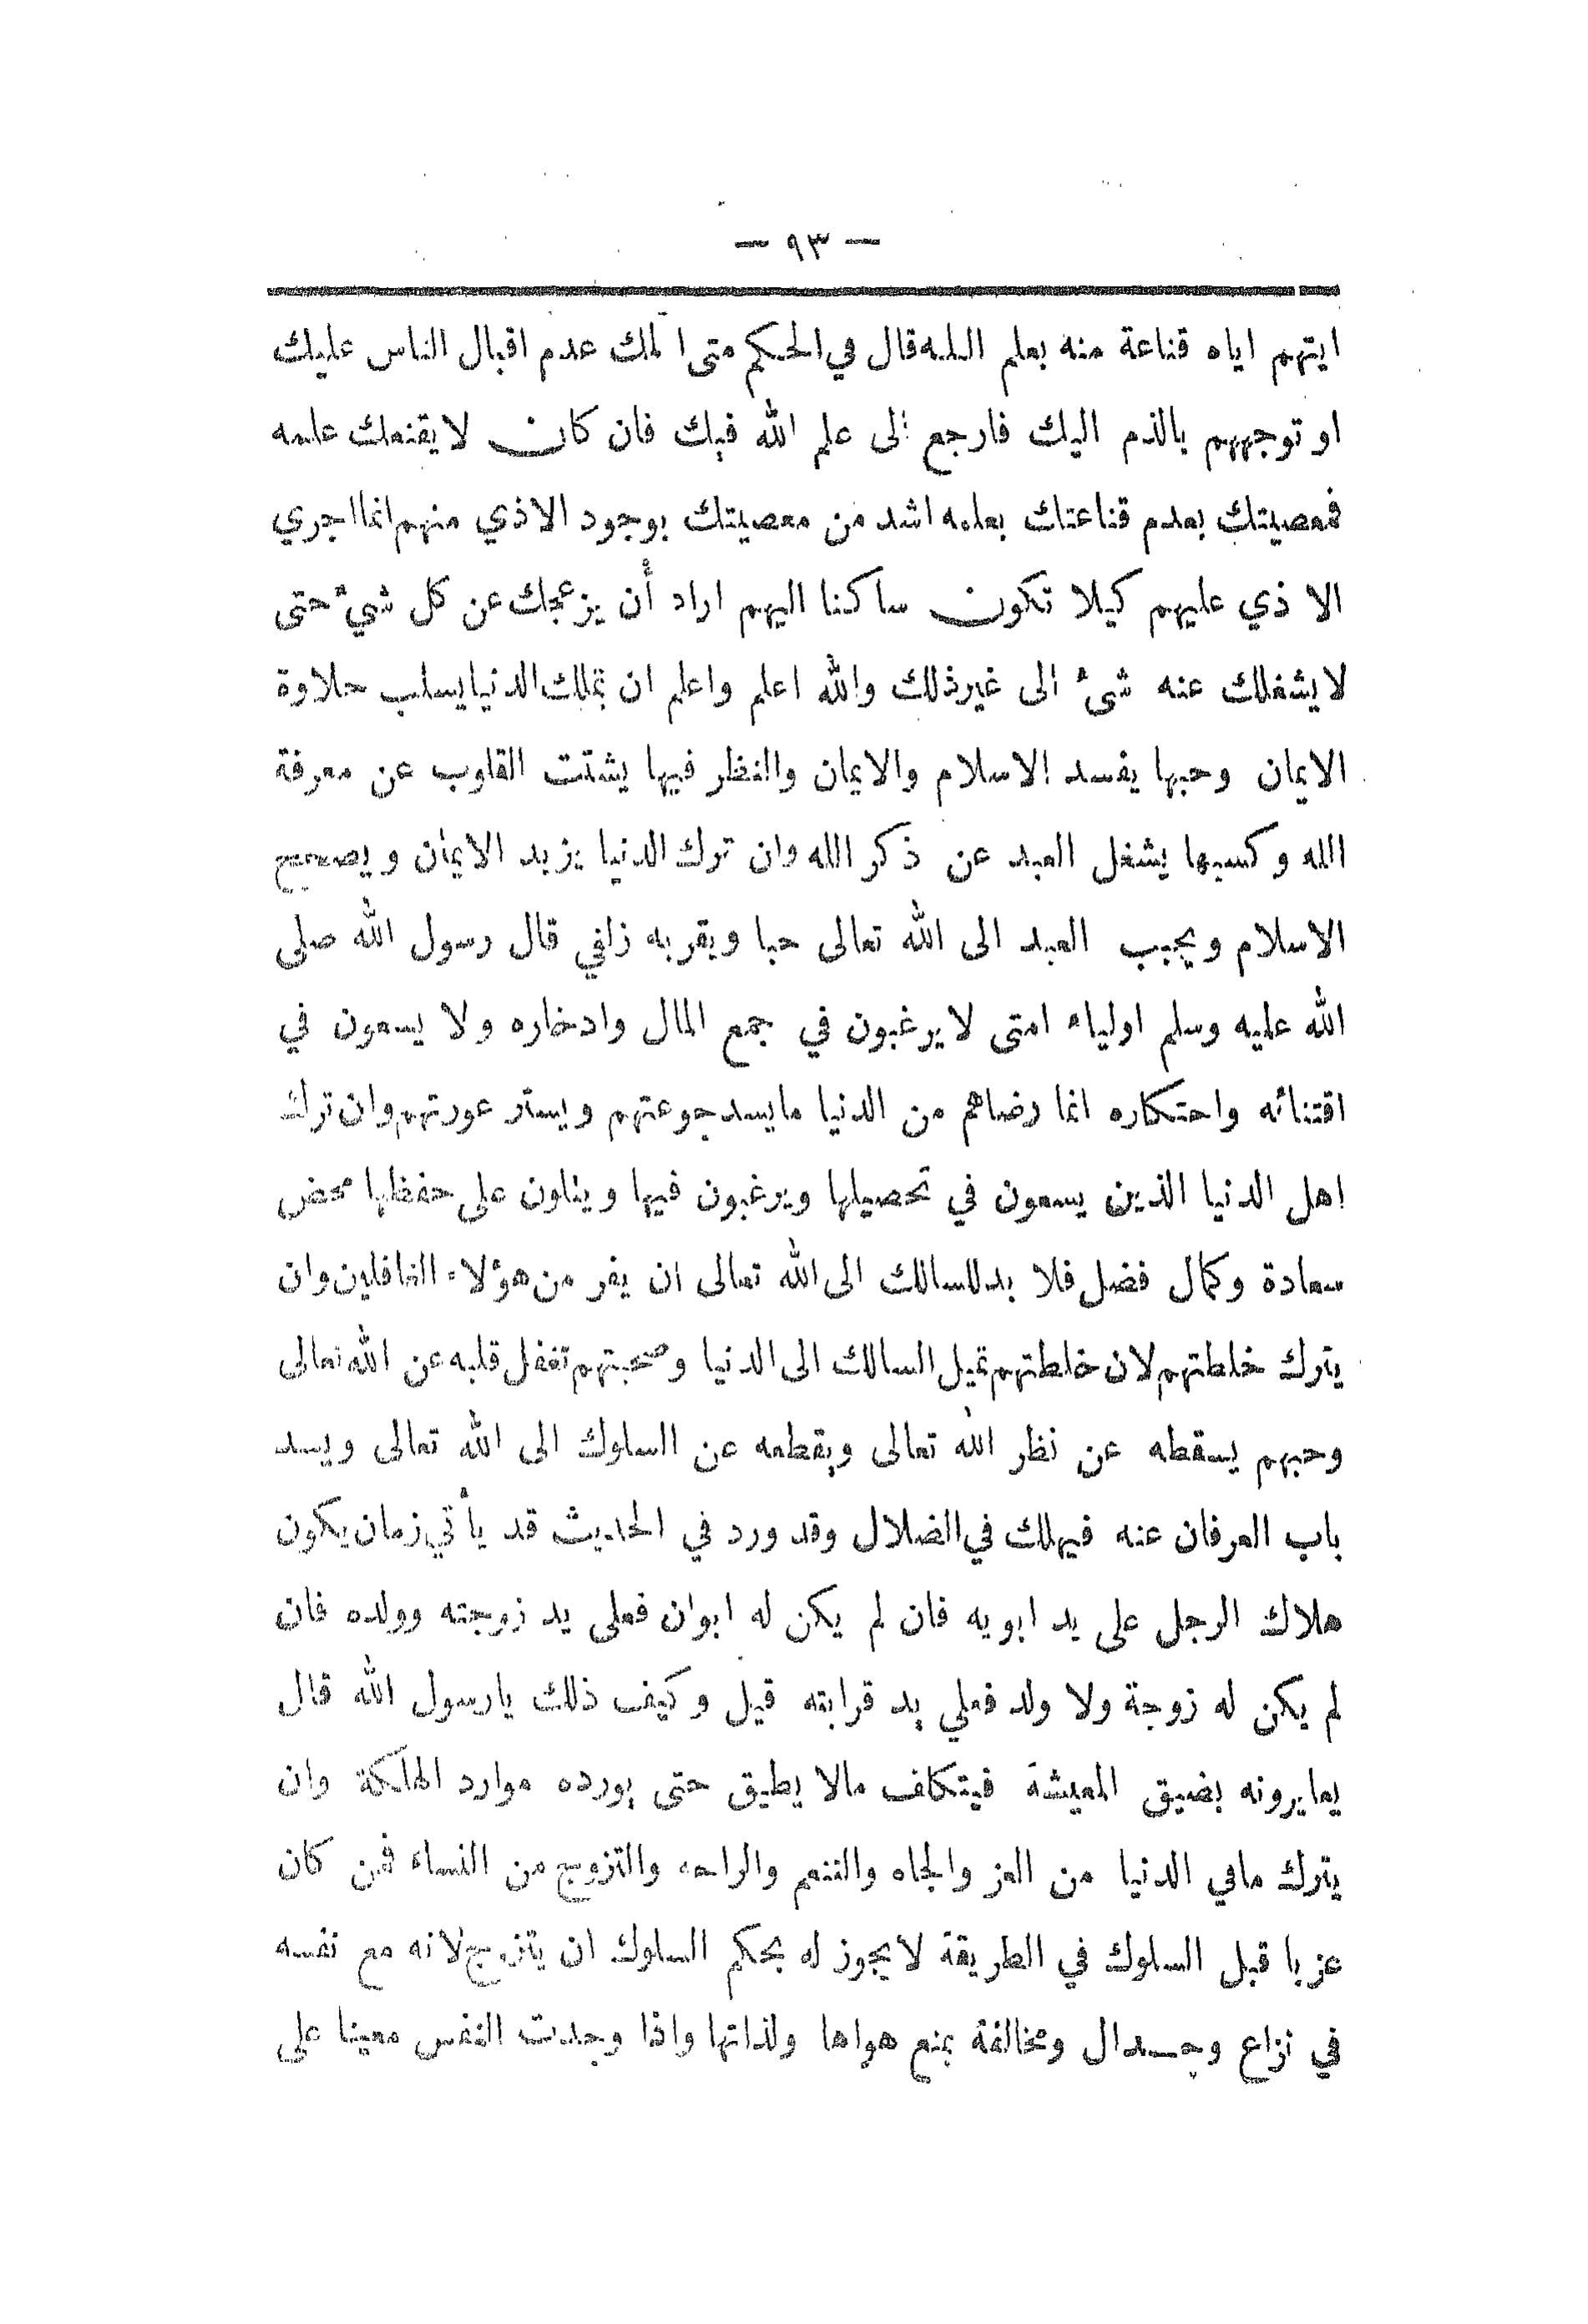 — ٩٣ —
ايتهم اياه قناعة منه بعلم الله قال في الحكم متى المك عدم اقبال الناس عليك
او توجههم بالذم اليك فارجع الى علم الله فيك فان كان لا يقنعك علمه
فمعصيتك بعدم قناعتك بعلمه اشد من معصيتك بوجود الاذي منهم انما اجري
الاذي عليهم كيلا تكون ساكنا اليهم اراد أن يزعجك عن كل شيء حتى
لا يشغلك عنه شئ الى غير ذلك والله اعلم واعلم ان تملك الدنيا يسلب حلاوة
الايمان وحبها يفسد الاسلام والايمان والنظر فيها يشتت القلوب عن معرفة
الله وكسبها يشغل العبد عن ذكر الله وان ترك الدنيا يزيد الايمان ويصحح
الاسلام ويحبب العبد الى الله تعالى حبا ويقربه زلفي قال رسول الله صلى
الله عليه وسلم اولياء امتى لا يرغبون في جمع المال وادخاره ولا يسعون في
اقتنائه واحتكاره انما رضاهم من الدنيا ما يسد جوعتهم ويستر عورتهم وان ترك
اهل الدنيا الذين يسعون في تحصيلها ويرغبون فيها وينلون على حفظها محض
سعادة وكمال فضل فلا بد للسالك الى الله تعالى ان يفر من هؤلاء الغافلين وان
يترك خلطتهم لان خلطتهم تميل السالك الى الدنيا وصحبتهم تغفل قلبه عن الله تعالى
وحبهم يسقطه عن نظر الله تعالى ويقطعه عن السلوك الى الله تعالى ويسد
باب العرفان عنه فيهلك في الضلال وقد ورد في الحديث قد يأتي زمان يكون
هلاك الرجل على يد ابويه فان لم يكن له ابوان فعلى يد زوجته وولده فان
لم يكن له زوجة ولا ولد فعلي يد قرابته قيل وكيف ذلك يا رسول الله قال
يعايرونه بضيق المعيشة فيتكلف مالا يطيق حتى يورده موارد الهلكة وان
يترك مافي الدنيا من العز والجاه والتنعم والراحه والتزوج من النساء فمن كان
عزبا قبل السلوك في الطريقة لا يجوز له بحكم السلوك ان يتزوج لانه مع نفسه
في نزاع وجدال ومخالفة بمنع هواها ولذاتها واذا وجدت النفس معينا على